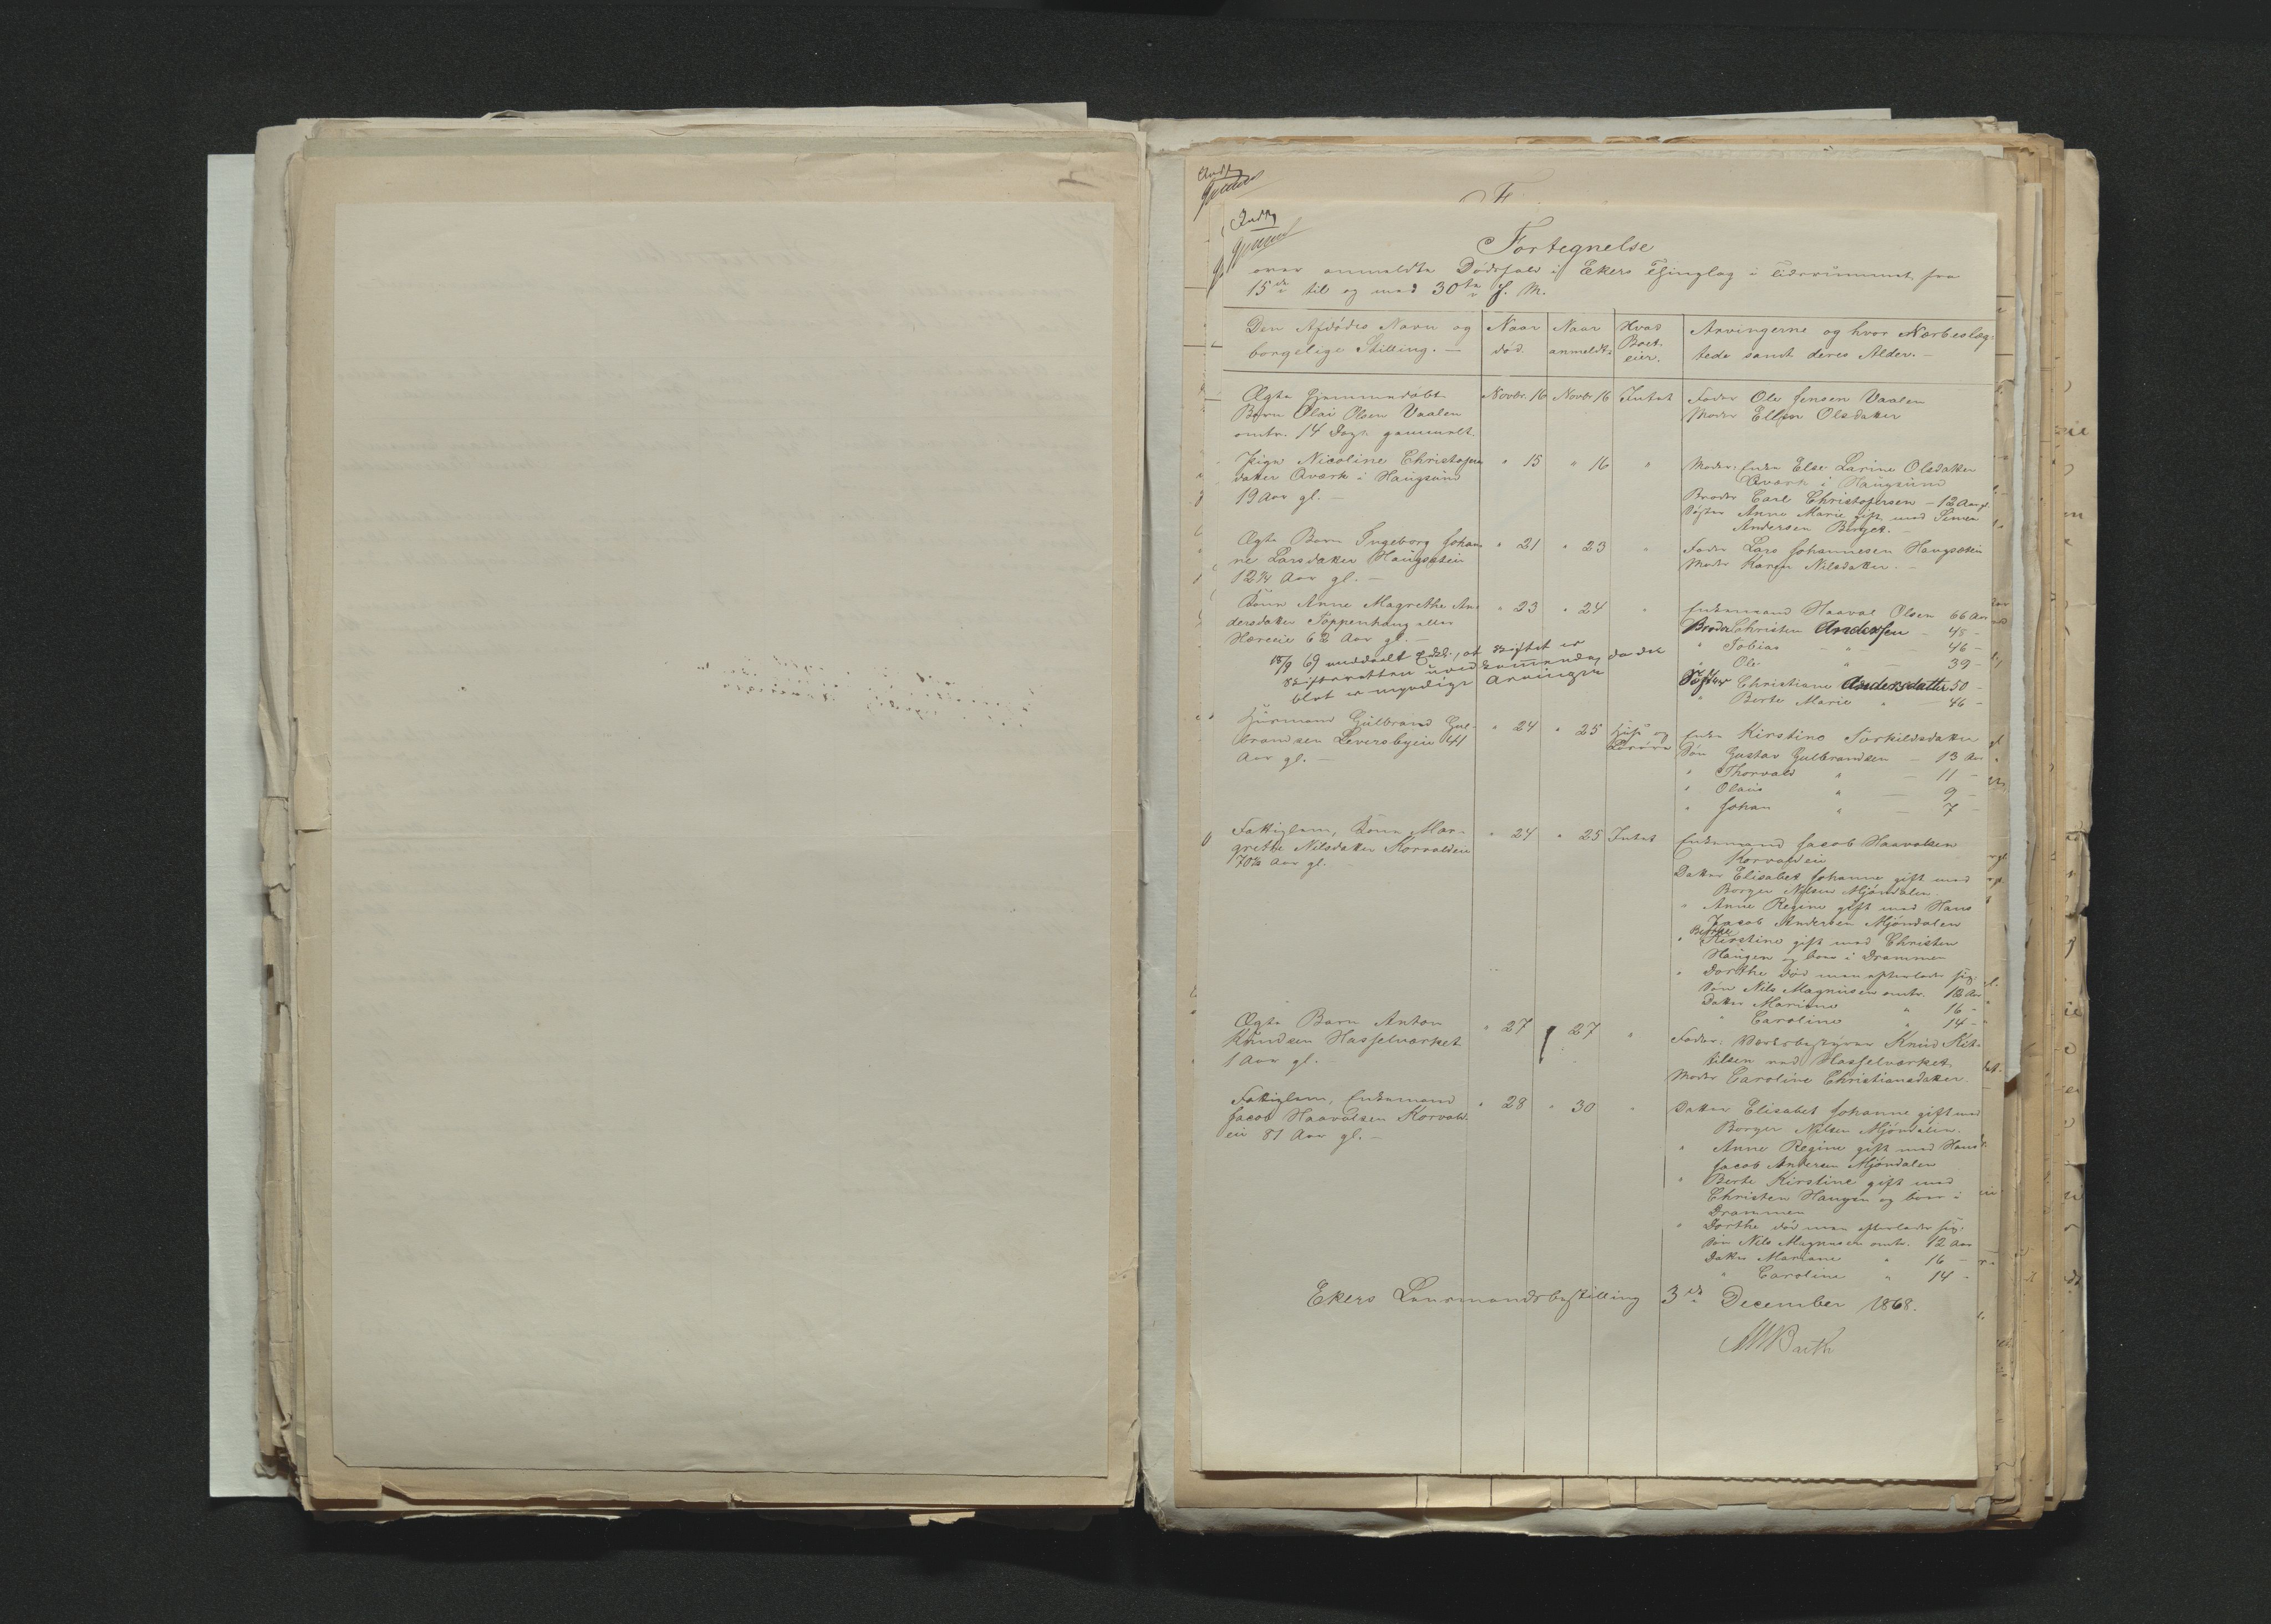 Fortegnelse
over anmeldte Dødsfald i Ekers Thinglag i Tidsrummet fra
15de til og med 30te f. M.
Den Afdødes Navn og borgelige Stilling. —
Naar død.
Naar anmeldt.
Hvad Boet eier.
Arvingerne og hvor Nærbeslæg-
tede samt deres Alder. —
Ægte hjemmedøbt Novbr. 16 Novbr 16 Intet Fader Ole Jensen Vaalen
Barn Olai Olsen Vaalen Moder Ellen Olsdatter
omtr. 14 Dage gammelt.
Pige Nicoline Christofers " 15 " 16 " Moder: Enke Else Larine Olsdatter
datter Aværk i Haugsund Aværk i Haugsund
19 Aar gl. — Broder Carl Christofersen — 12 Aar gl.
Søster Anne Marie gift med Simen
Andersen Berget. —
Ægte Barn Ingeborg Johan- " 21 " 23 " Fader Lars Johannesen Haugstein
ne Larsdatter Haugstein Moder Karen Nilsdatter. —
12 3/4 Aar gl. —
Kone Anne Magrethe An- " 23 " 24 " Enkemand Haaval Olsen 66 Aar
dersdatter Toppenhaug eller Broder Christen Andersen — 48 —
Horeeie 62 Aar gl. — " Tobias " — 46 —
18/9 69 meddealt at Skiftet er " Ole " — 39 —
Skifteretten uvedkommende, da der Søster Christiane Andersdatter 50 —
blot er myndige Arvinger " Berte Marie " — 46 —
Huusmand Gulbrand Gul- " 24 " 25 Huse og Enke Kirstine Torkildsdatter
brandsen Leversbyeie 41 Løsøre Søn Gustav Gulbrandsen — 13 Aar
Aar gl. — " Thorvald " — 11 —
" Olaus " — 9 —
" Johan " — 7 —
Fattiglem, Kone Mar- " 24 " 25 Intet Enkemand Jacob Haavalsen
grethe Nilsdatter Korvaldeie Korvaldeie
Aar gl. — Datter Elisabet Johanne gift med
Borger Nilsen Mjøndalen.
" Anne Regine gift med Hans
Jacob Andersen Mjøndalen
" Berthe Kirstine gift med Christen
Haugen og boer i Drammen
" Dorthe død men efterlader sig:
Søn Nils Magnusen omtr. 12 Aar
Datter Mariane " 16 —
" Caroline " 14 —
Ægte Barn Anton " 27 " 27 " Fader: Værksbestyrer Knud Kit-
Knudsen Hasselværket tilsen ved Hasselværket
1 Aar gl. — Moder Caroline Christiansdatter.
Fattiglem, Enkemand " 28 " 30 " Datter Elisabet Johanne gift med
Jacob Haavalsen Korvald- Borger Nilsen Mjøndalen.
eie 81 Aar gl. — " Anne Regine gift med Hans
Jacob Andersen Mjøndalen
" Berte Kirstine gift med
Christen Haugen og boer i
Drammen
" Dorthe død men efterlader sig:
Søn Nils Magnusen omtr. 12 Aar
Datter Mariane " 16 —
" Caroline " 14 —
Ekers Lensmandsbestilling 3de December 1868.